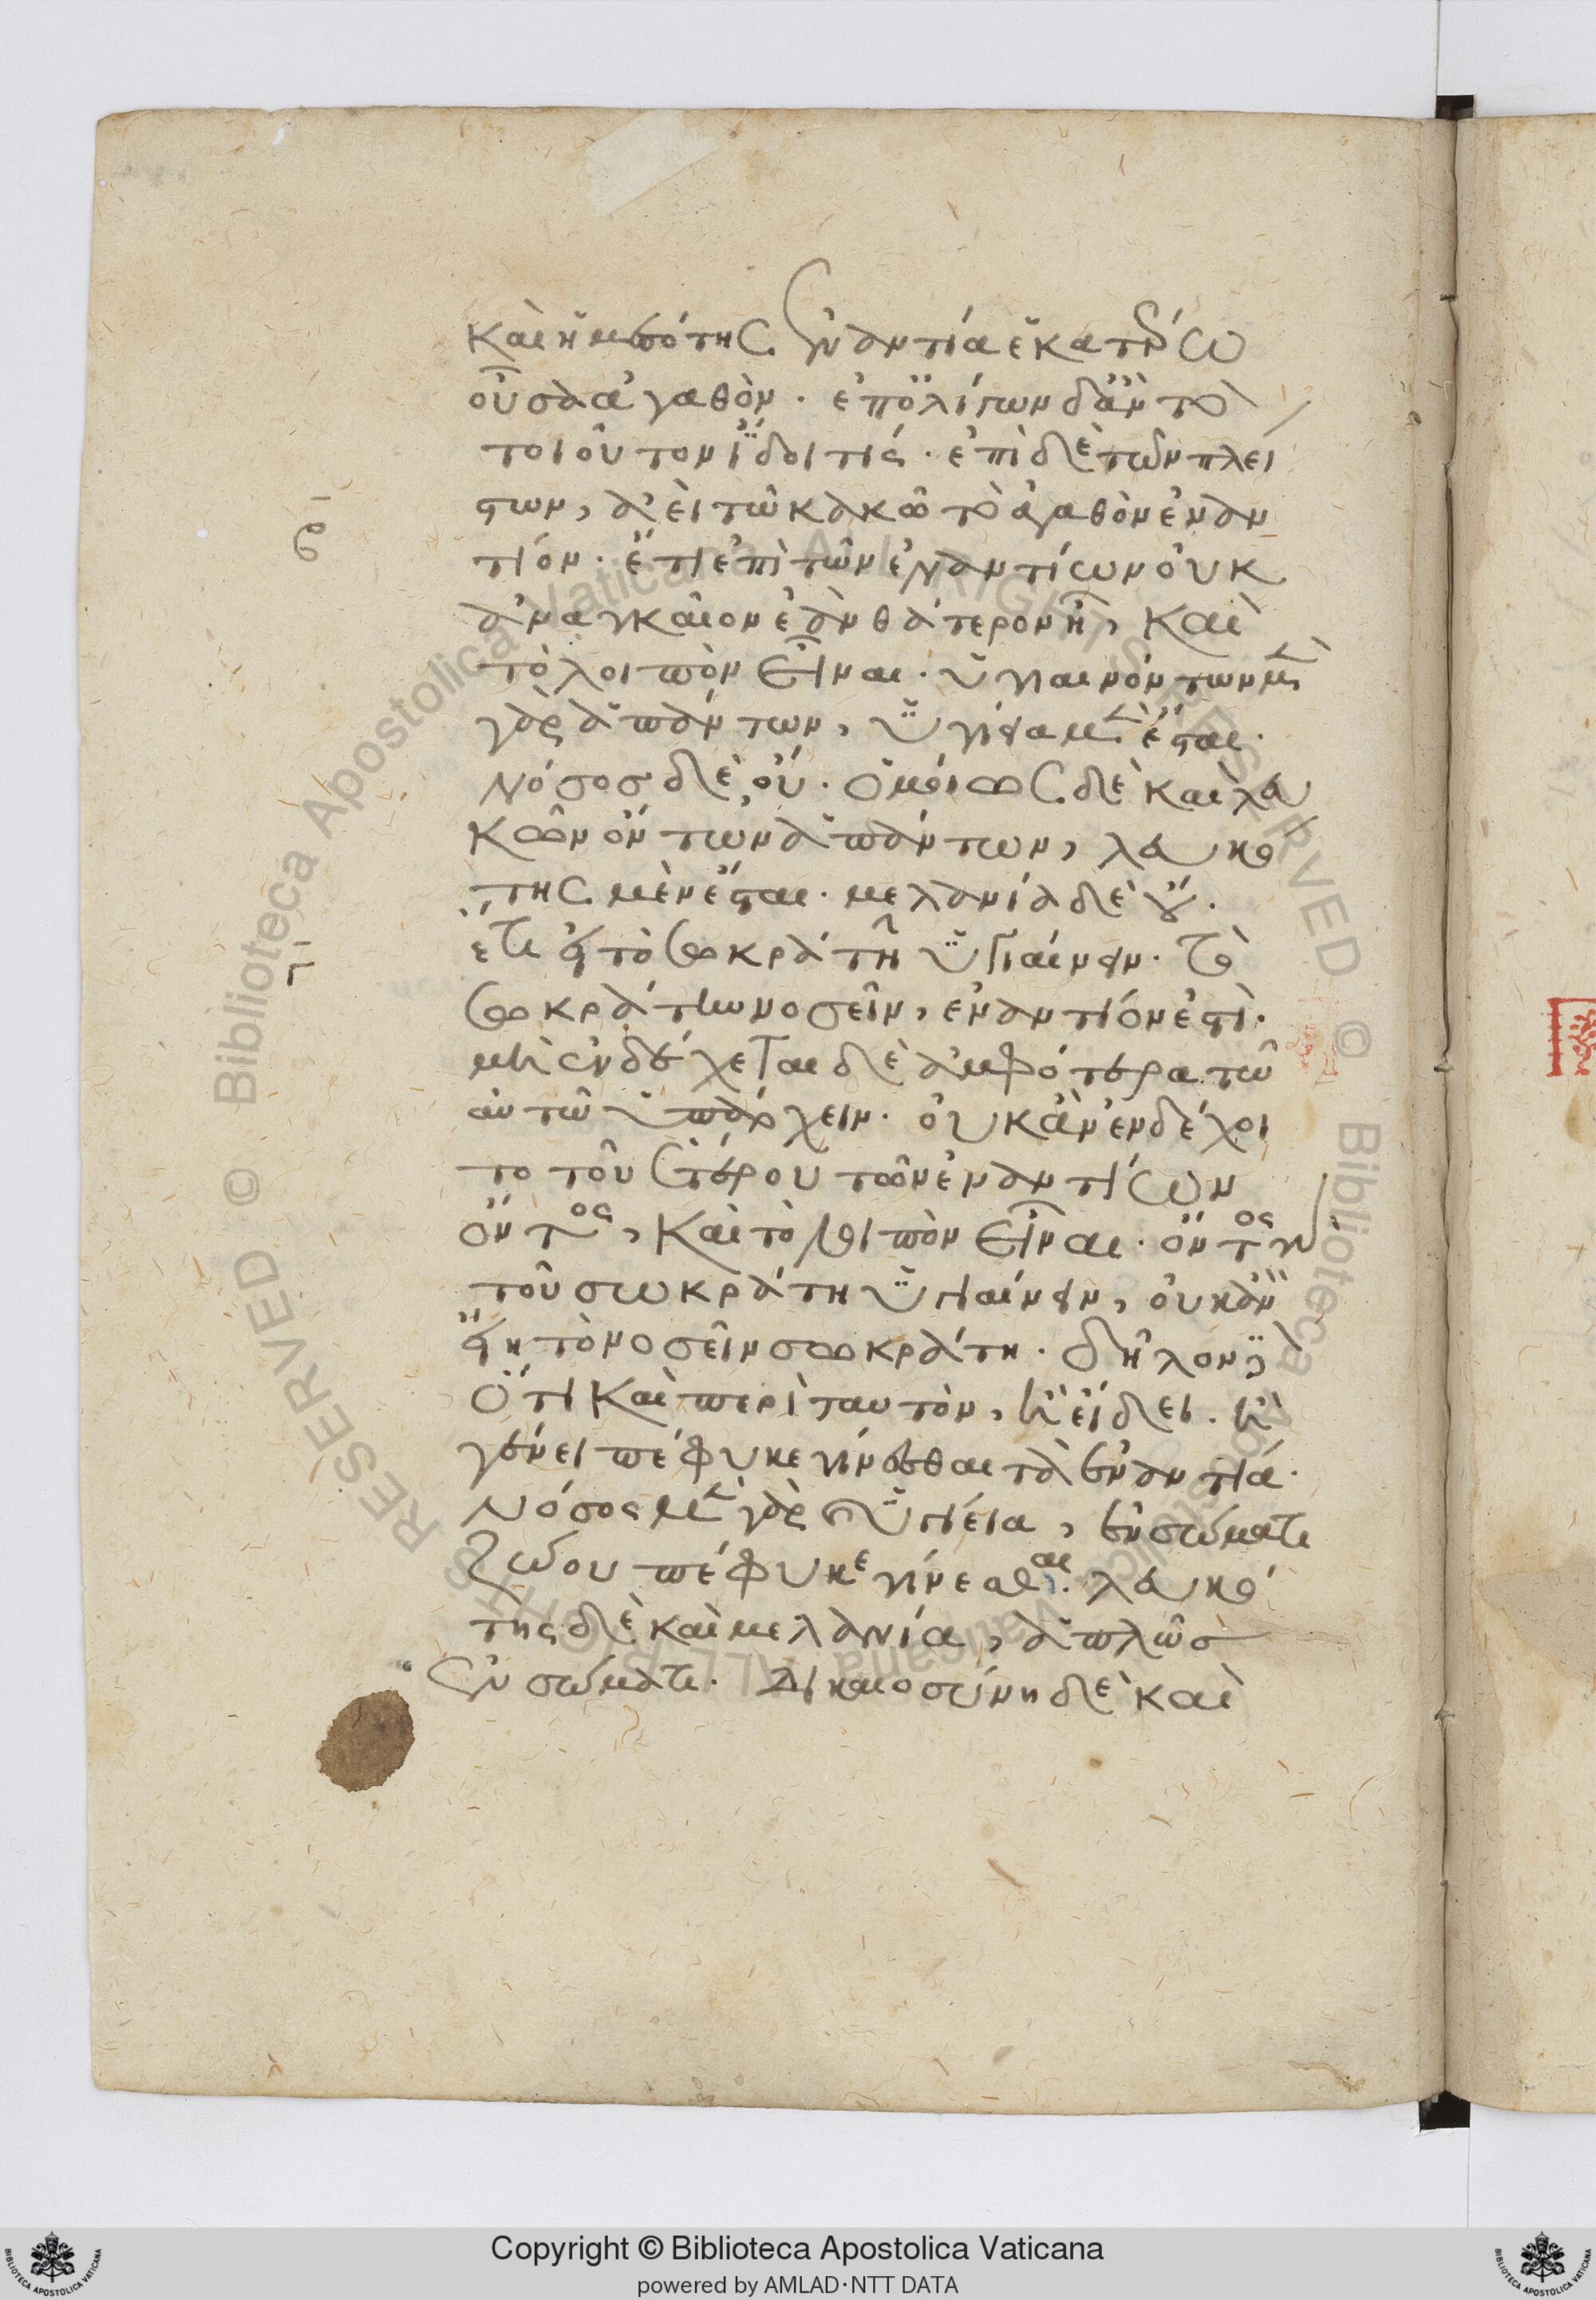 καὶ ἡ μεσότης ἐναντία ἑκατέρω
οὖσα ἀγαθὸν. ἐπ ὀλίγων δ ἂν τὸ
τοιοῦτον ἴδοι τίς. ἐπὶ δὲ τῶν πλεί
στων, ἀεὶ τῶ κακῶ τὸ ἀγαθὸν ἐναν
τίον. ἔτι ἐπὶ τῶν ἐναντίων οὐκ
ἀναγκαῖον ἐὰν θάτερον ἦ, καὶ
τὸ λοιπὸν εἶναι. ὑγιαινόντων μὲν
γὰρ ἁπάντων, ὑγίεια μὲν ἔσται.
νόσος δὲ οὔ. ὁμοίως δὲ καὶ λευ
κῶν ὄντων ἁπάντων, λευκό
της μὲν ἔσται. μελανία δὲ οὔ.
ἔτι εἰ τὸ σωκράτη ὑγιαίνειν. τὸ
σωκράτη νοσεῖν, ἐναντίον ἐστὶ.
μὴ ἐνδέχεται δὲ ἀμφότερα τῶ
αὐτῶ ὑπάρχειν. οὐκ ἂν ἐνδέχοι
το τοῦ ἑτέρου τῶν ἐναντίων
ὄντος, καὶ τὸ λοιπὸν εἶναι. ὄντος γὰρ
τοῦ σωκράτη ὑγιαίνειν, οὐκ ἂν
εἴη τὸ νοσεῖν σωκράτη. δῆλον δὲ
ὅτι καὶ περὶ ταυτὸν, ἢ εἴδει. ἢ
γένει πέφυκε γίνεσθαι τὰ ἐναντία.
νόσος μὲν γὰρ καὶ ὑγιεία, ἐν σώματι
ζώου πέφυκε γίνεσθαι. λευκό
της δὲ καὶ μελανία, ἁπλῶς
ἐν σώματι. δικαιοσύνη δὲ καὶ
Copyright © Biblioteca Apostolica Vaticana
powered by AMLAD·NTT DATA